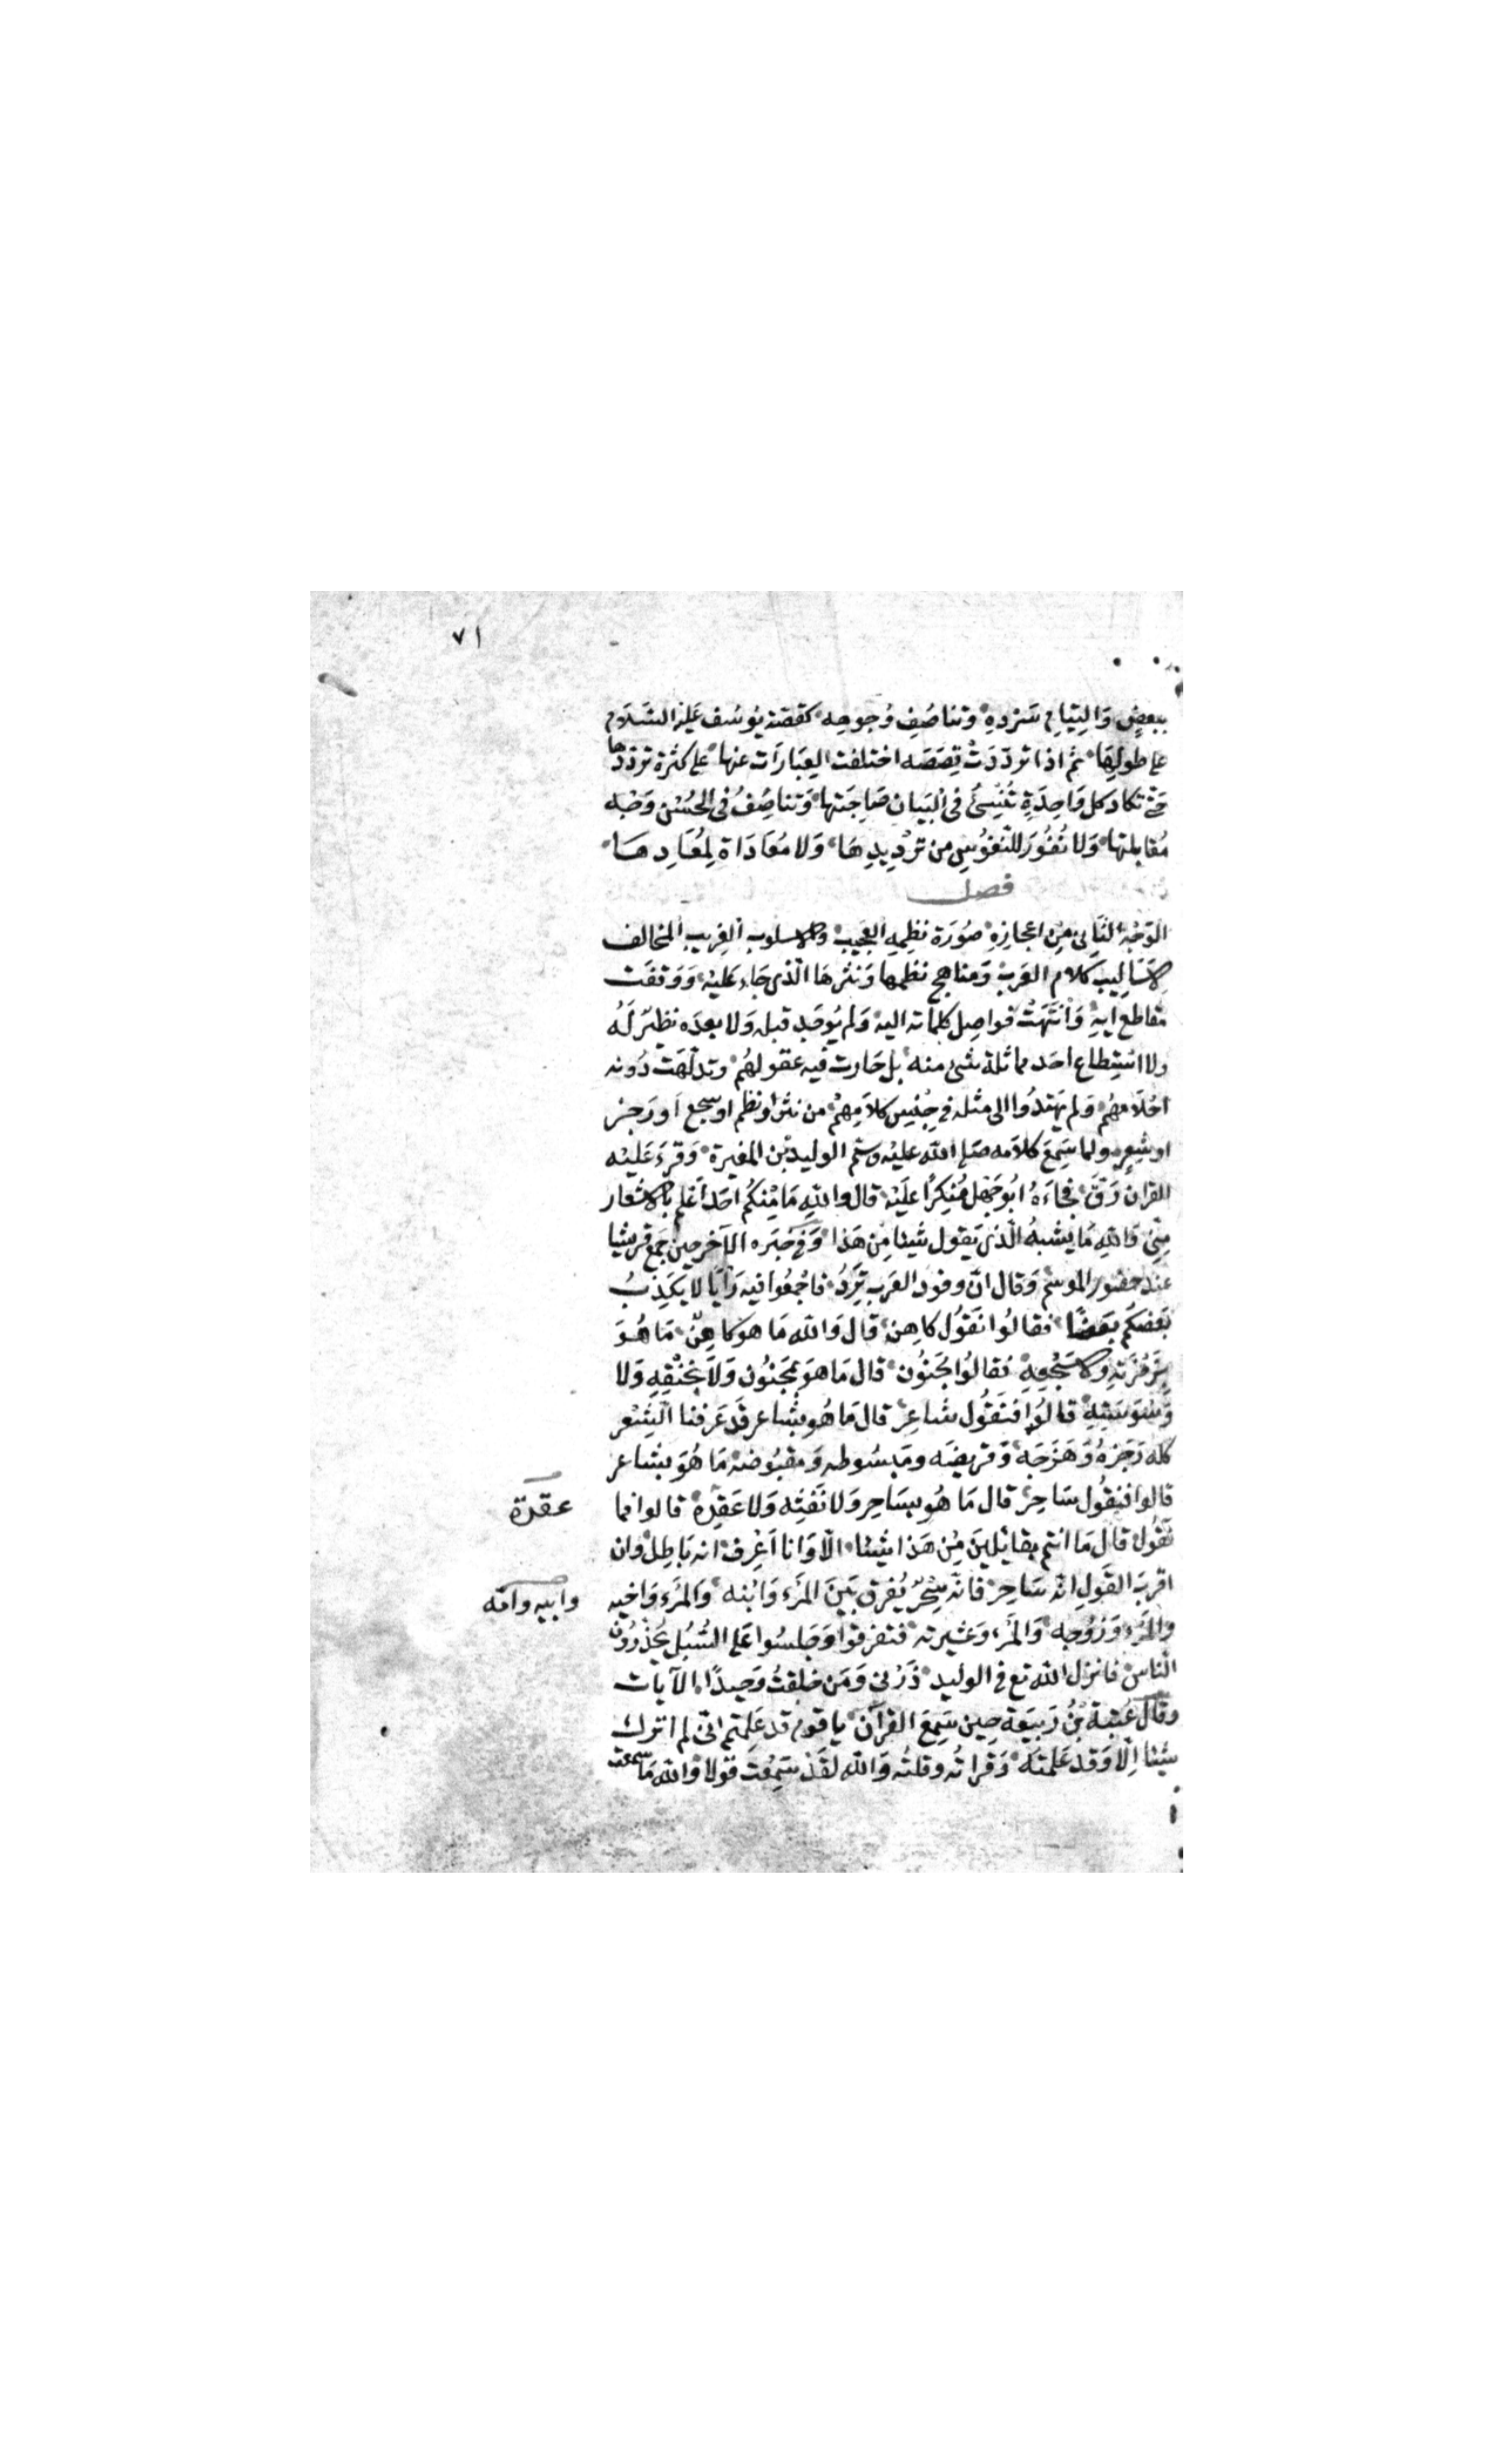 ٧١
ببعضٍ وَالِتيَامِ سَرْدِهِ وتناصُفِ وُجوهِه كقصّة يُوسُف عَليْه السَّلام
على طولِهَا ثم اذا تردّدَتْ قِصَصَه اختلفت العِبَارَات عنها على كثرة تردّدها
حتى تكاد كل وَاحِدَةٍ تُنَسِّى فى البَيان صَاحِبَتها وَتناصِفُ فى الحُسْن وَجْه
مُقابلتها وَلا نُفُورَ للنّفوُسِ من ترْدِيدِهَا وَلا مُعَادَاة لِمُعَادِهَا
فصل
الوَجْه الثَّانى مِن اعجازِهِ صُورَة نظمِه العَجيب والاسلوب الغرِيب المخالف
لاَسَالِيب كلام العَرب وَمناهج نظمها وَنثرهَا الّذى جَاء عَليْه وَوَقفَت
مقاطع ايهِ وَانْتَهَتْ فواصِل كلماته اليه وَلم يُوجَد قبله وَلا بعدَه نظيرٌ لَهُ
ولا استِطاع احَد مماثلة شىء منه بل حَارت فيه عقولهُم وتدلّهَتْ دُونه
احْلامهُم وَلم يَهتدُوا الى مثله فى جِنْسِ كلامِهِمْ من نثر اونظم اوسجع اَورَجز
اوشِعرٍ ولما سَمِعَ كلامَه صَلى الله عليْه وسَلم الوليد بْن المغيرة وَقرَءَ عَليْه
القران رَقّ فجاءَهُ ابُوجَهْل مُنْكِرًا عليْه قال والله مَا مِنكُم احَد اَعْلم بالاشعَار
مِنّى وَاللهِ مَا يشبهُ الذى يَقول شيئا مِن هَذا وَفى خَبَره الاَخر حين جَمع قريشا
عند حضور الموسم وَقال انّ وفود العَرب تَرِدُ فاجْمعُوا فيه رَأيًا لا يكَذِّبُ
بَعضكُم بَعضًا فقالوُا نَقوُل كاهِن قال وَالله مَا هو كاهِنٌ مَا هُوَ
بِزَمْزَمَتِهِ ولا سَجْعِهِ فقالوُا مَجنُون قال مَا هوَ بمَجنُون وَلا بخنْقِهِ وَلا
وَسْوَسَتِهِ قالوُا فنَقُول شاعِر قال مَا هُو بشاعر قد عَرَفنا الشِّعْر
كلّه رَجَزهُ وَهَزَجَه وَقريضَه ومَبسُوطه وَمقبُوضه مَا هُوَ بشاعر
قالوا فنقُول سَاحِر قال مَا هُو بسَاحِر وَلا نَفثِه وَلا عَقْدِه قالوا فما
عقدة
نَقوُل قال مَا انتم بقائلينَ مِن هَذا شيئا الّا وَانا اَعْرف انه بَاطِل وان
اقربَ القَولِ انّه سَاحِر فانّه سِحْرٌ يُفرق بَينَ المَرْء وَابْنه والمَرْء وَاخيه
وابيه وامّه
والمَرْء وَزَوْجه وَالمَرْء وَعَشيرته فتفرقوا وَجَلسُوا على السُّبُل يحَذّرُون
النّاس فانزل الله تع فى الوليد ذَرْنى وَمَن خلقتُ وَحِيدًا الآيات
وقال عُتبة بْنُ رَبيعَة حِين سَمِعَ القرآن يا قوم قد عَلِمْتم انّى لم اترك
شيئا اِلّا وَقد عَلمته وَقراته وقلته وَالله لقَد سَمِعْت قولا وَالله مَا سمعت